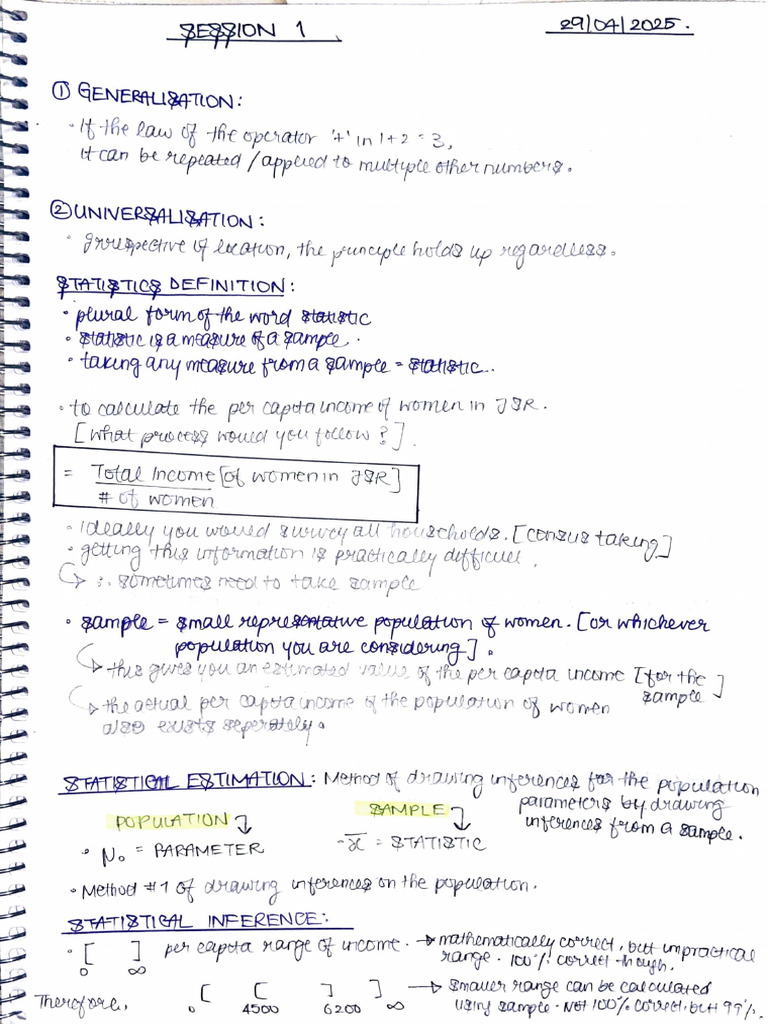 SESSION 1
29/04/2025.
① GENERALISATION:
• If the law of the operator '+' in 1+2=3,
it can be repeated / applied to multiple other numbers.
② UNIVERSALISATION:
• Irrespective of location, the principle holds up regardless.
STATISTICS DEFINITION:
• plural form of the word statistic
• statistic is a measure of a sample.
• taking any measure from a sample = statistic..
• to calculate the per capita income of women in JSR.
[what process would you follow?]
= Total Income [of women in JSR]
# of women
• ideally you would survey all households. [census taking]
• getting this information is practically difficult.
↳ ∴ sometimes need to take sample
• sample = small representative population of women. [or whichever
population you are considering].
↳ this gives you an estimated value of the per capita income [for the
sample]
↳ the actual per capita income of the population of women
also exists seperately.
STATISTICAL ESTIMATION: Method of drawing inferences for the population
parameters by drawing
inferences from a sample.
POPULATION ↴
SAMPLE ↴
• N₀ = PARAMETER
- x̄ = STATISTIC
• Method #1 of drawing inferences on the population.
STATISTICAL INFERENCE:
• [ ] per capita range of income. → mathematically correct, but impractical
0 ∞
range. 100% correct though.
Therefore, [ [ ] ] → smaller range can be calculated
0 4500 6200 ∞
using sample. Not 100% correct, but 99%.